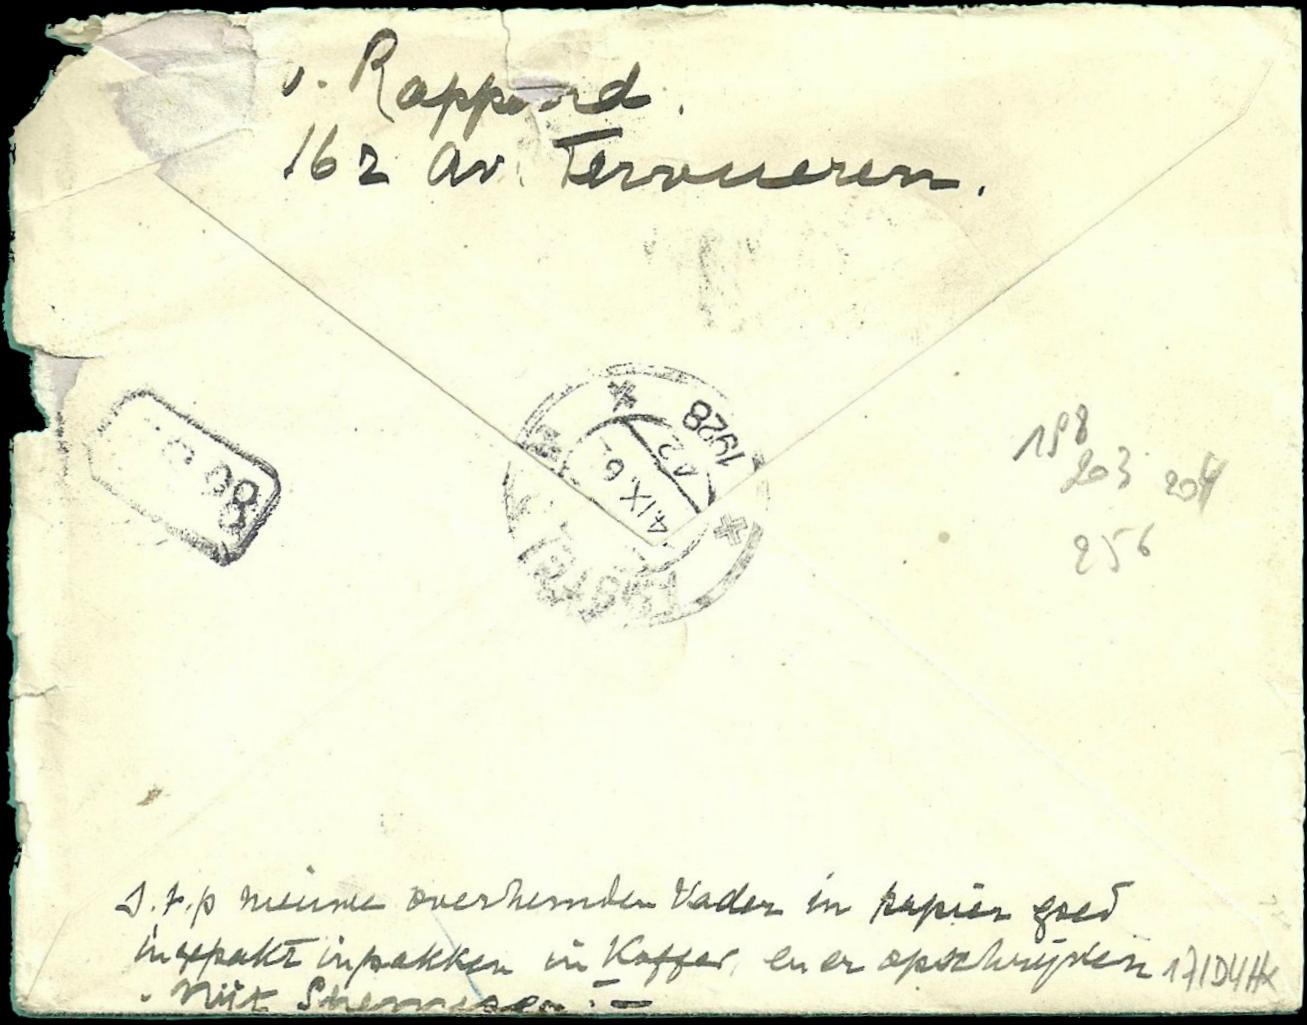 v. Rappard.
162 Av. Tervueren.
4.IX.6-
12
1928
80
198
203 204
256
s.v.p nieuwe overhemden Vader in papier goed
ingepakt inpakken in Koffer, en er opschrijven
. Niet
17/D4HK